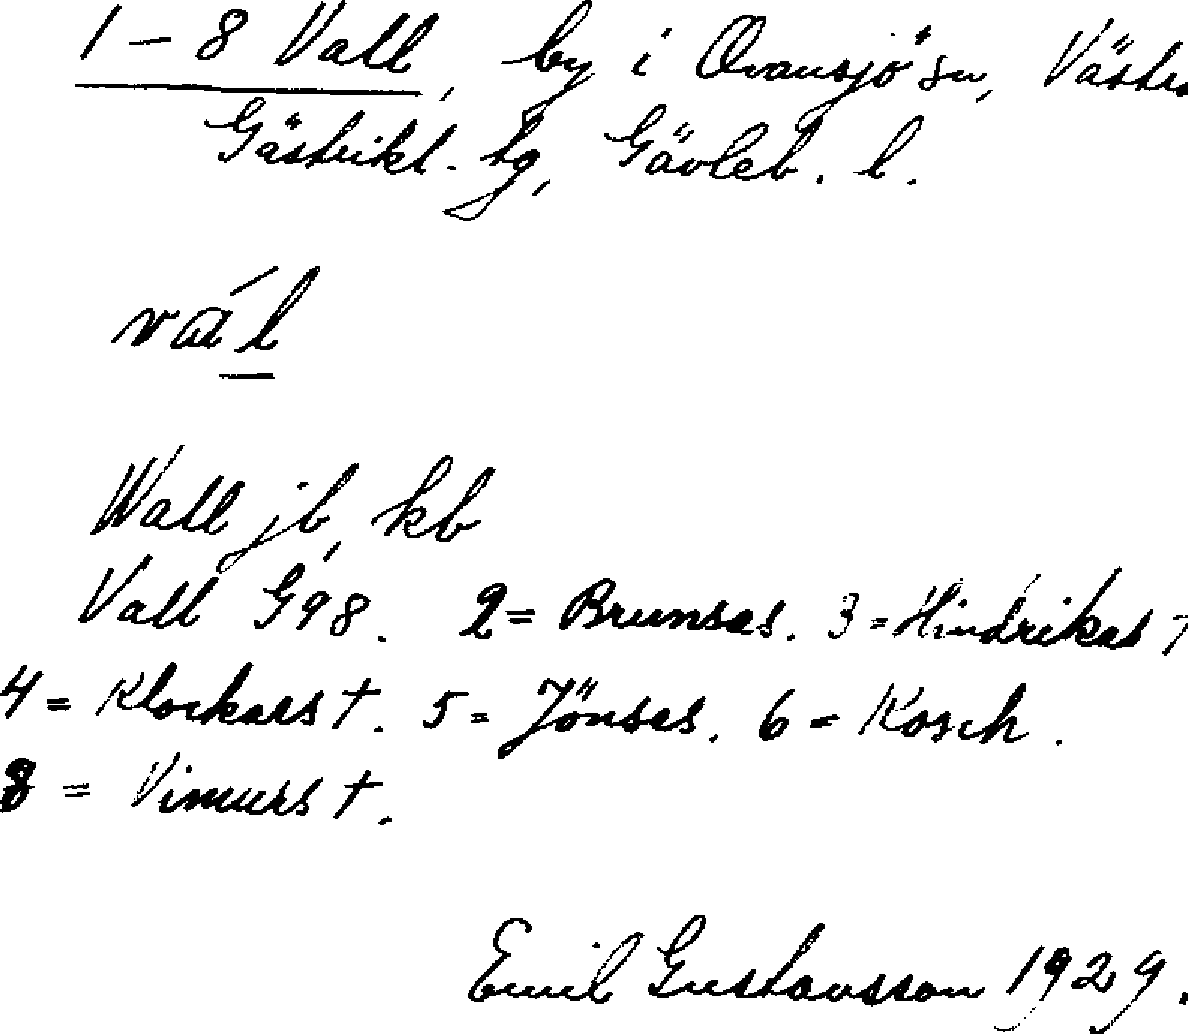 1 – 8 Vall, by i Ovansjö sn, Västra
Gästrikl. tg, Gävleb. l.
vál
Wall jb, kb
Vall G98. 2 = Brunsas. 3 = Hindrikas †
4 = Klockars †. 5 = Jönsas. 6 = Kosch.
8 = Vimurs †.
Emil Gustavsson 1929.